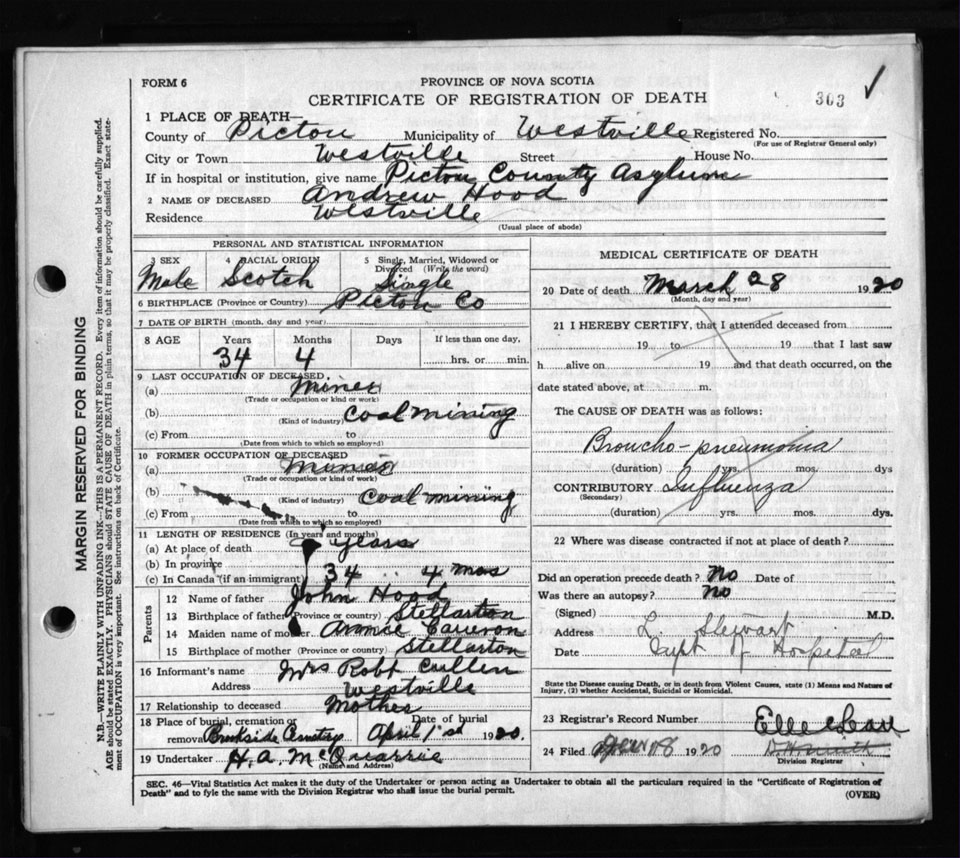 FORM 6
PROVINCE OF NOVA SCOTIA
CERTIFICATE OF REGISTRATION OF DEATH
303 ✓
1 PLACE OF DEATH—
County of Pictou Municipality of Westville Registered No.
(For use of Registrar General only)
City or Town Westville Street House No.
If in hospital or institution, give name Pictou County Asylum
2 NAME OF DECEASED Andrew Hood
Residence Westville
(Usual place of abode)
PERSONAL AND STATISTICAL INFORMATION
3 SEX 4 RACIAL ORIGIN 5 Single, Married, Widowed or Divorced (Write the word)
Male Scotch Single
6 BIRTHPLACE (Province or Country) Pictou Co
7 DATE OF BIRTH (month, day and year)
8 AGE Years Months Days If less than one day,
34 4 hrs. or min.
9 LAST OCCUPATION OF DECEASED
(a) Miner
(Trade or occupation or kind or work)
(b) Coal mining
(Kind of industry)
(c) From to
(Date from which to which so employed)
10 FORMER OCCUPATION OF DECEASED
(a) Miner
(Trade or occupation or kind of work)
(b) Coal mining
(Kind of industry)
(c) From to
(Date from which to which so employed)
11 LENGTH OF RESIDENCE (In years and months)
(a) At place of death years
(b) In province
(c) In Canada (if an immigrant) 34 4 mos
Parents
12 Name of father John Hood
13 Birthplace of father (Province or country) Stellarton
14 Maiden name of mother Annie Cameron
15 Birthplace of mother (Province or country) Stellarton
16 Informant's name Mrs Robt Cullen
Address Westville
17 Relationship to deceased Mother
18 Place of burial, cremation or removal Brookside Cemetery Date of burial April 1st 1920.
19 Undertaker H.A. McQuarrie
(Name and Address)
MEDICAL CERTIFICATE OF DEATH
20 Date of death March 28 1920
(Month, day and year)
21 I HEREBY CERTIFY, that I attended deceased from
19 to 19 that I last saw
h alive on 19 and that death occurred, on the
date stated above, at m.
The CAUSE OF DEATH was as follows:
Broncho-pneumonia
(duration) yrs. mos. dys
CONTRIBUTORY Influenza
(Secondary)
(duration) yrs. mos. dys.
22 Where was disease contracted if not at place of death?
Did an operation precede death? No Date of
Was there an autopsy? No
(Signed) M.D.
Address L. Stewart
Date Supt of Hospital
State the Disease causing Death, or in death from Violent Causes, state (1) Means and Nature of
Injury, (2) whether Accidental, Suicidal or Homicidal.
23 Registrar's Record Number
24 Filed 1920
Division Registrar
SEC. 46—Vital Statistics Act makes it the duty of the Undertaker or person acting as Undertaker to obtain all the particulars required in the "Certificate of Registration of
Death" and to fyle the same with the Division Registrar who shall issue the burial permit.
(OVER)
MARGIN RESERVED FOR BINDING
N.B.—WRITE PLAINLY WITH UNFADING INK—THIS IS A PERMANENT RECORD. Every item of information should be carefully supplied.
AGE should be stated EXACTLY. PHYSICIANS should STATE CAUSE OF DEATH in plain terms, so that it may be properly classified. Exact statement of OCCUPATION is very important. See instructions on back of Certificate.